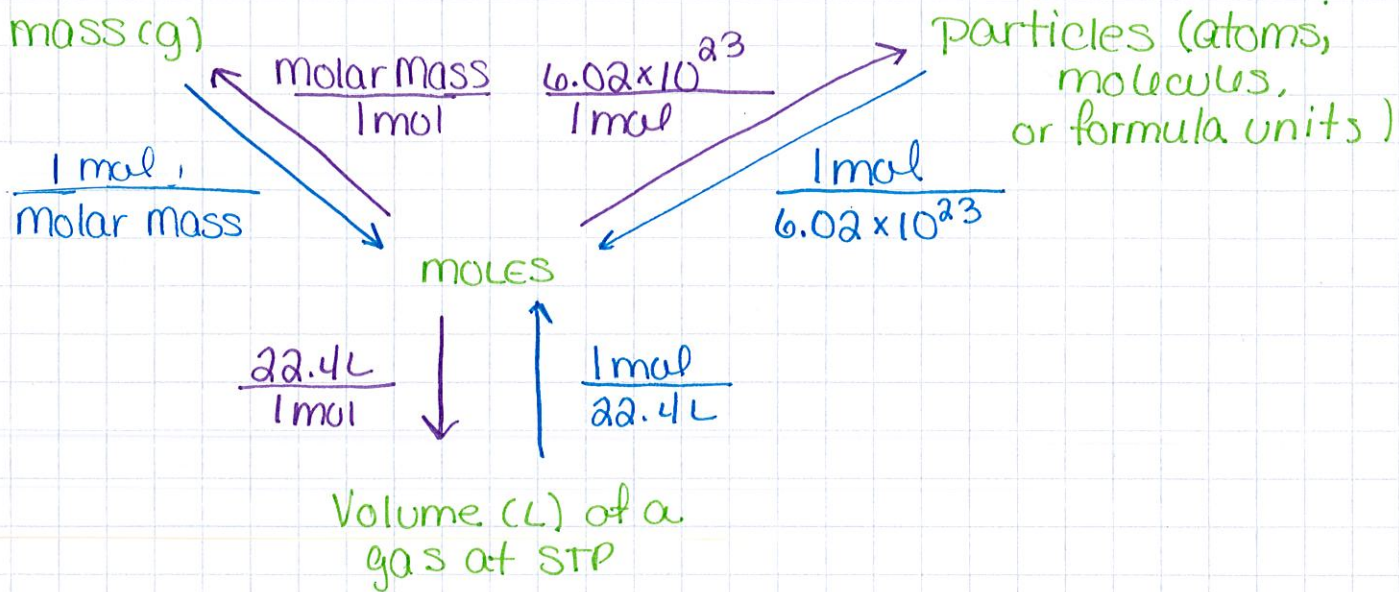 mass (g)
molar mass
1 mol
6.02 x 10^23
1 mol
particles (atoms,
molecules,
or formula units)
1 mol
molar mass
1 mol
6.02 x 10^23
MOLES
22.4 L
1 mol
1 mol
22.4 L
Volume (L) of a
gas at STP